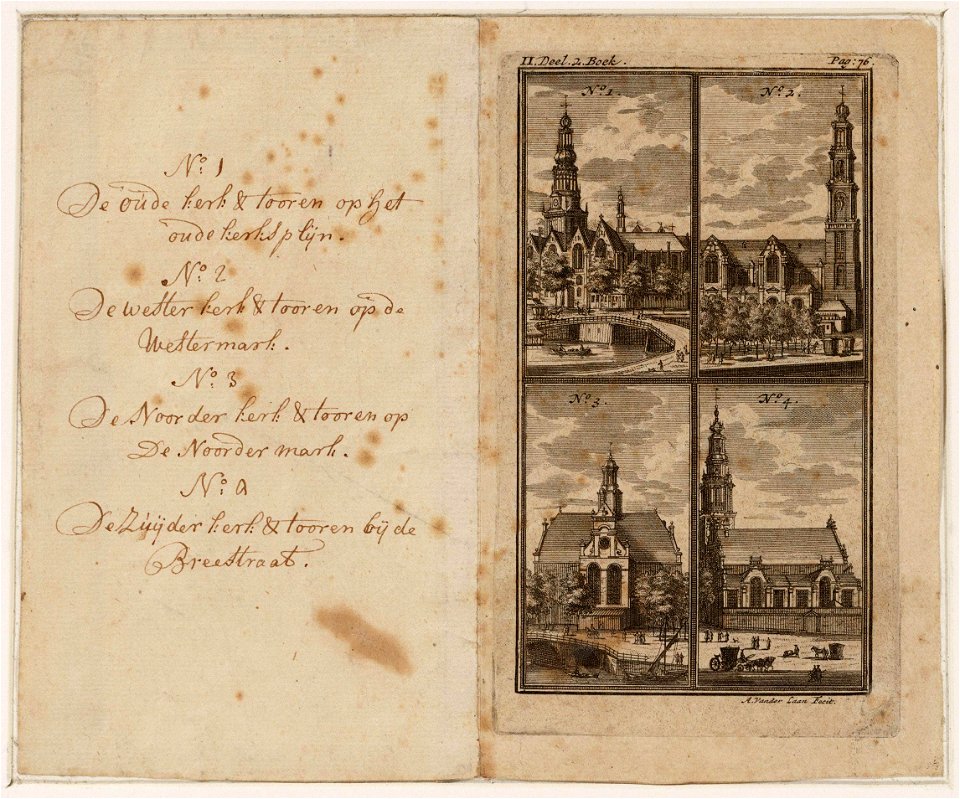 No. 1
De oude kerk & tooren op het
oude kerksplijn.
No. 2
De wester kerk & tooren op de
Westermark.
No. 3
De Noorder kerk & tooren op
De Noorder mark.
No. 4
De Zuÿder kerk & tooren bÿ de
Breestraat.
II. Deel. 2. Boek. Pag: 76.
No. 1. No. 2.
No. 3. No. 4.
A. Vander Laan Fecit.